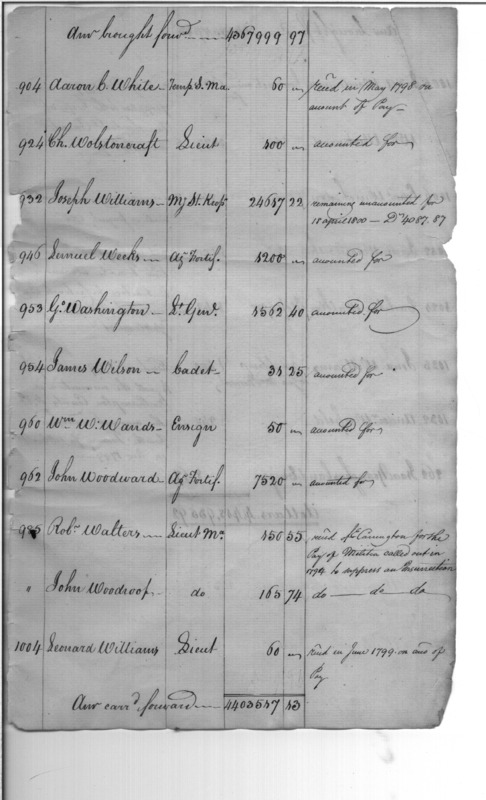 Amo brought forwd 4367999 97
904 Aaron C. White Temp. S. Ma. 60 " rec'd in May 1798 on
amount of Pay
924 Ch. Wolstoncraft Lieut 100 " accounted for
932 Joseph Williams My St. Keepr 24657 22 remaining unaccounted for
18 april 1800 — Ds 4087.87
946 Lemuel Weeks At Fortif. 1200 " accounted for
953 Go Washington Lt Genl. 1562 40 accounted for
954 James Wilson Cadet 31 25 accounted for
960 Wm W. Wands Ensign 50 " accounted for
962 John Woodward At Fortif. 7520 " accounted for
985 Robt. Walters Lieut Ma. 150 55 rec'd Carrington for the
Pay of Militia called out in
1794 to suppress an Insurrection
" John Woodroof do 165 74 do — do — do
1004 Leonard Williams Lieut 60 " rec'd in June 1799 on acct of
Pay
Amo carrd forward 4403557 13